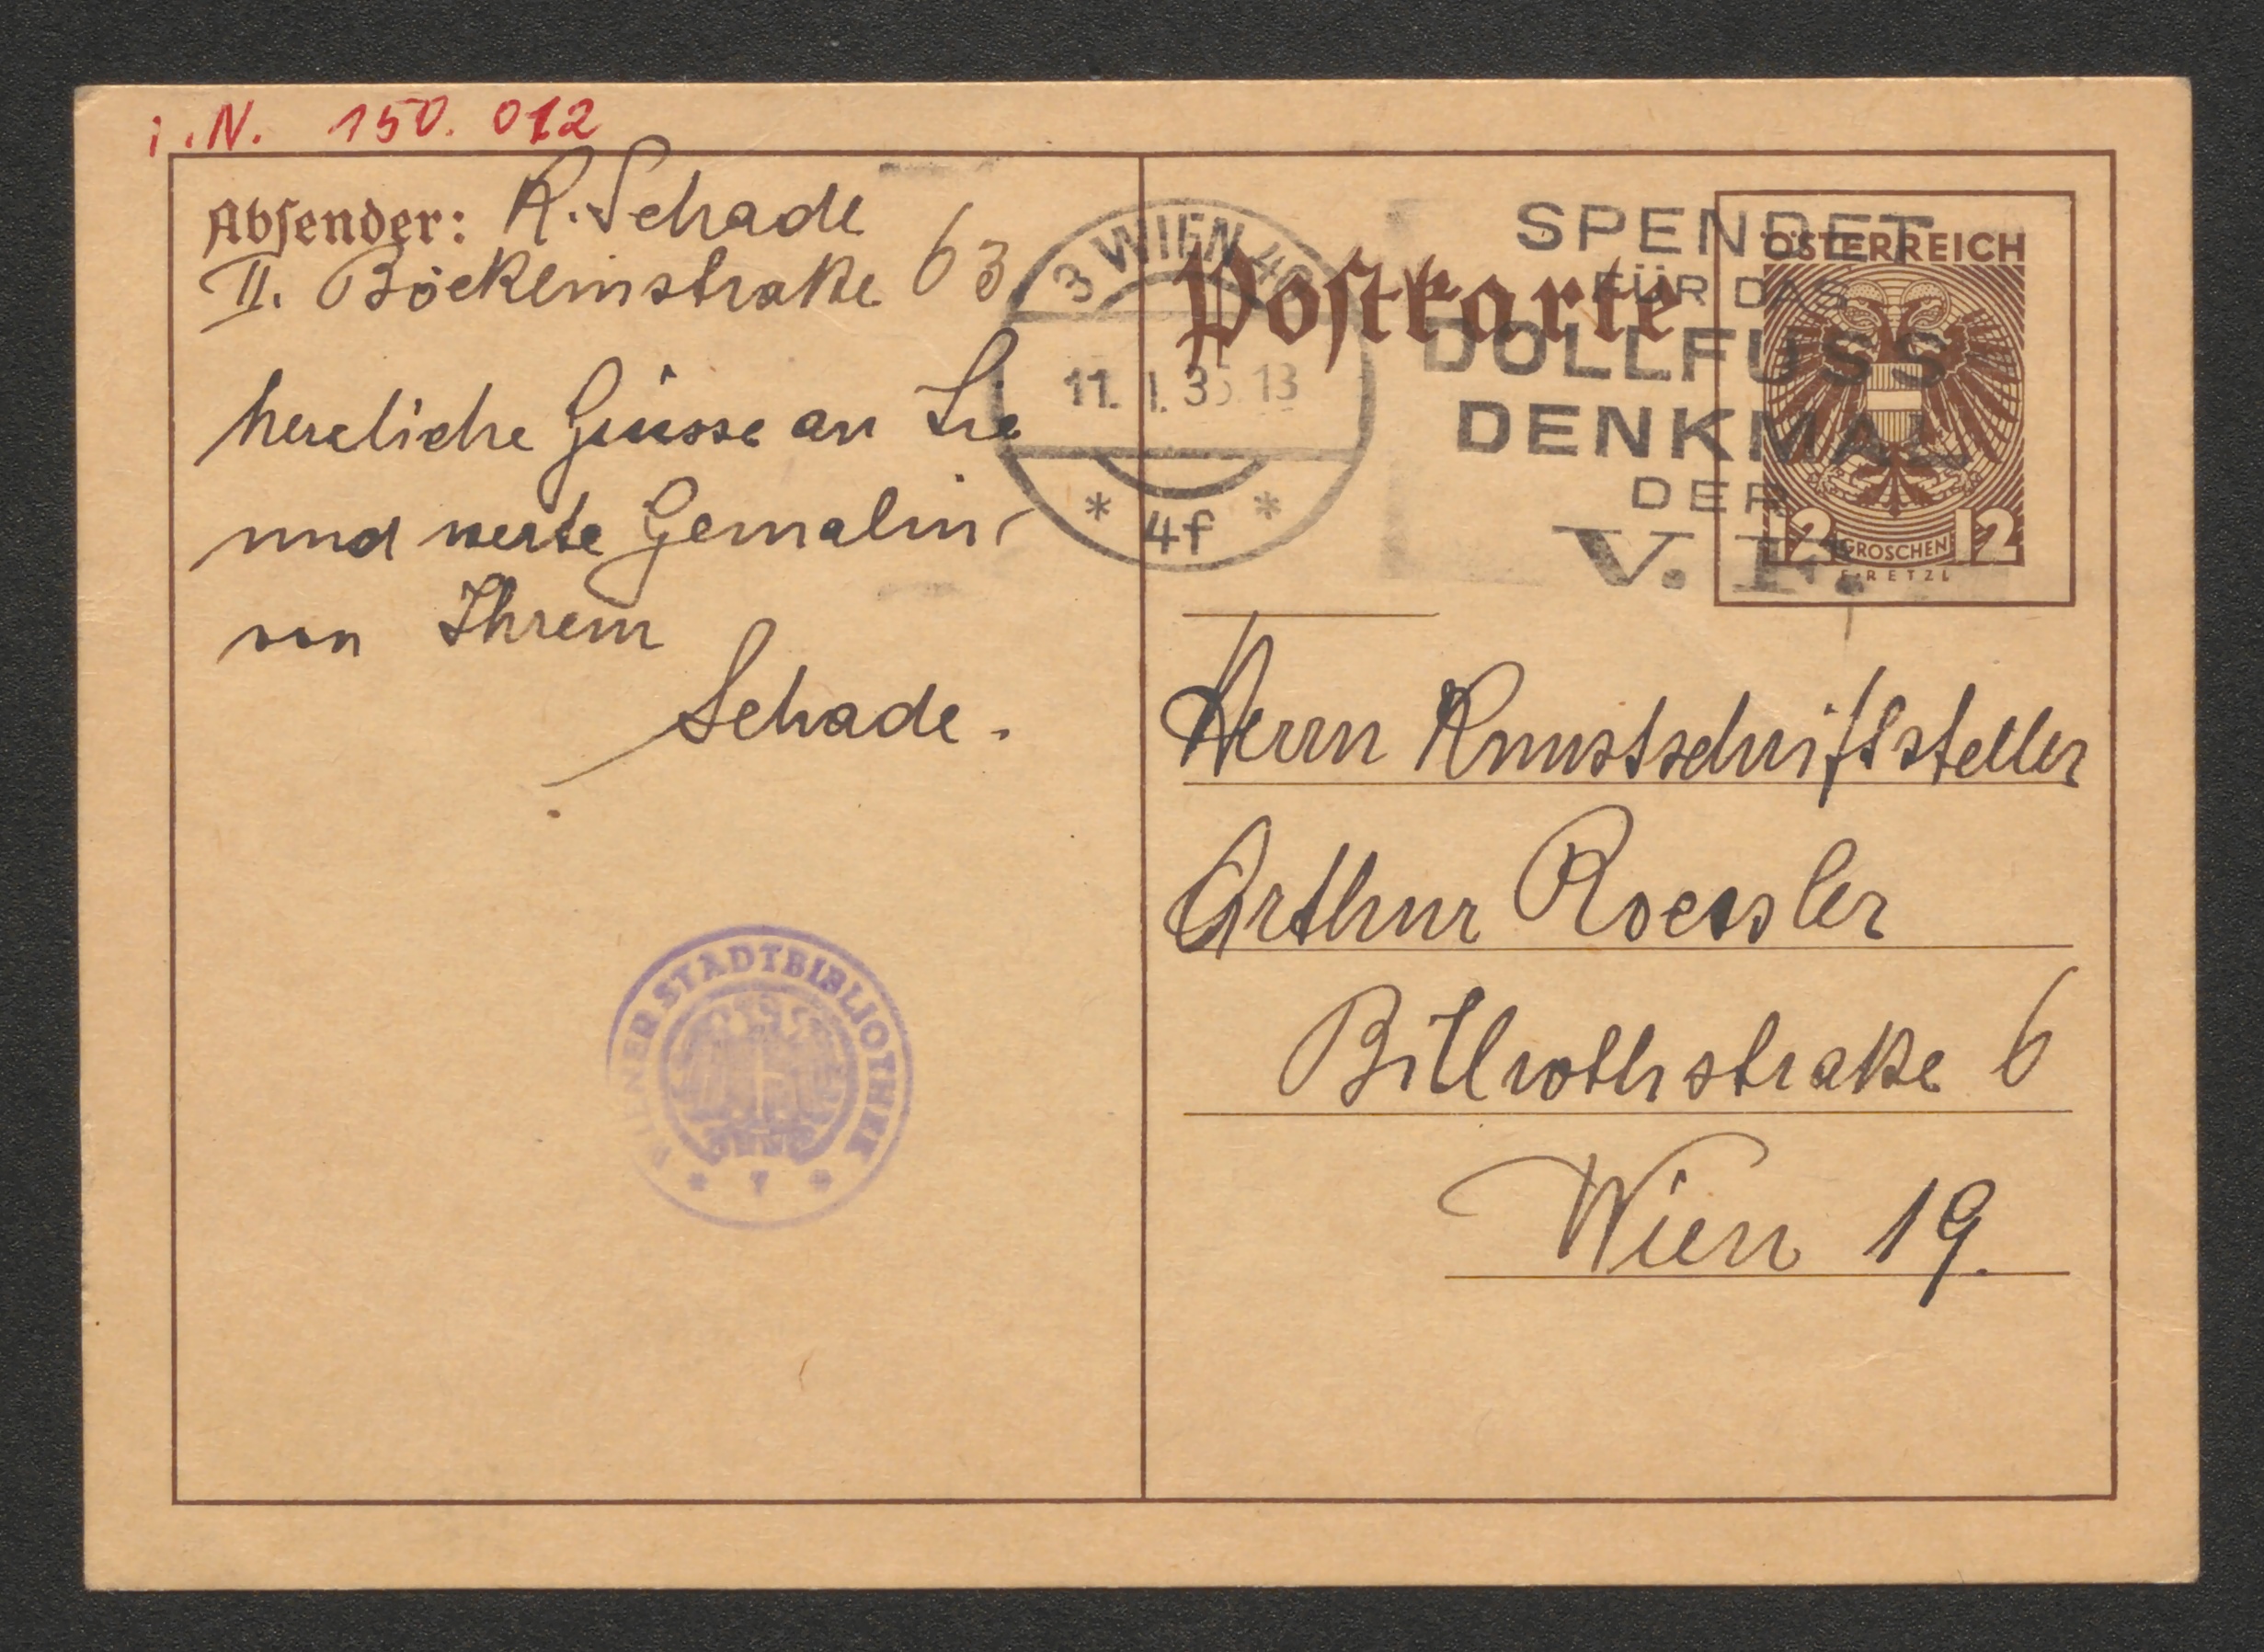 i.N. 150.012
Absender: R. Schade
II. Böcklinstraße 63
herzliche Grüsse an Sie
und werte Gemalin
von Ihrem
Schade.
WIENER STADTBIBLIOTHEK
3 WIEN 40
11. I. 35. 13
* 4f *
Postkarte
SPENDET
FÜR DAS
DOLLFUSS
DENKMAL
DER
V. F.
ÖSTERREICH
12 GROSCHEN 12
Herrn Kunstschriftsteller
Arthur Roessler
Billrothstraße 6
Wien 19.